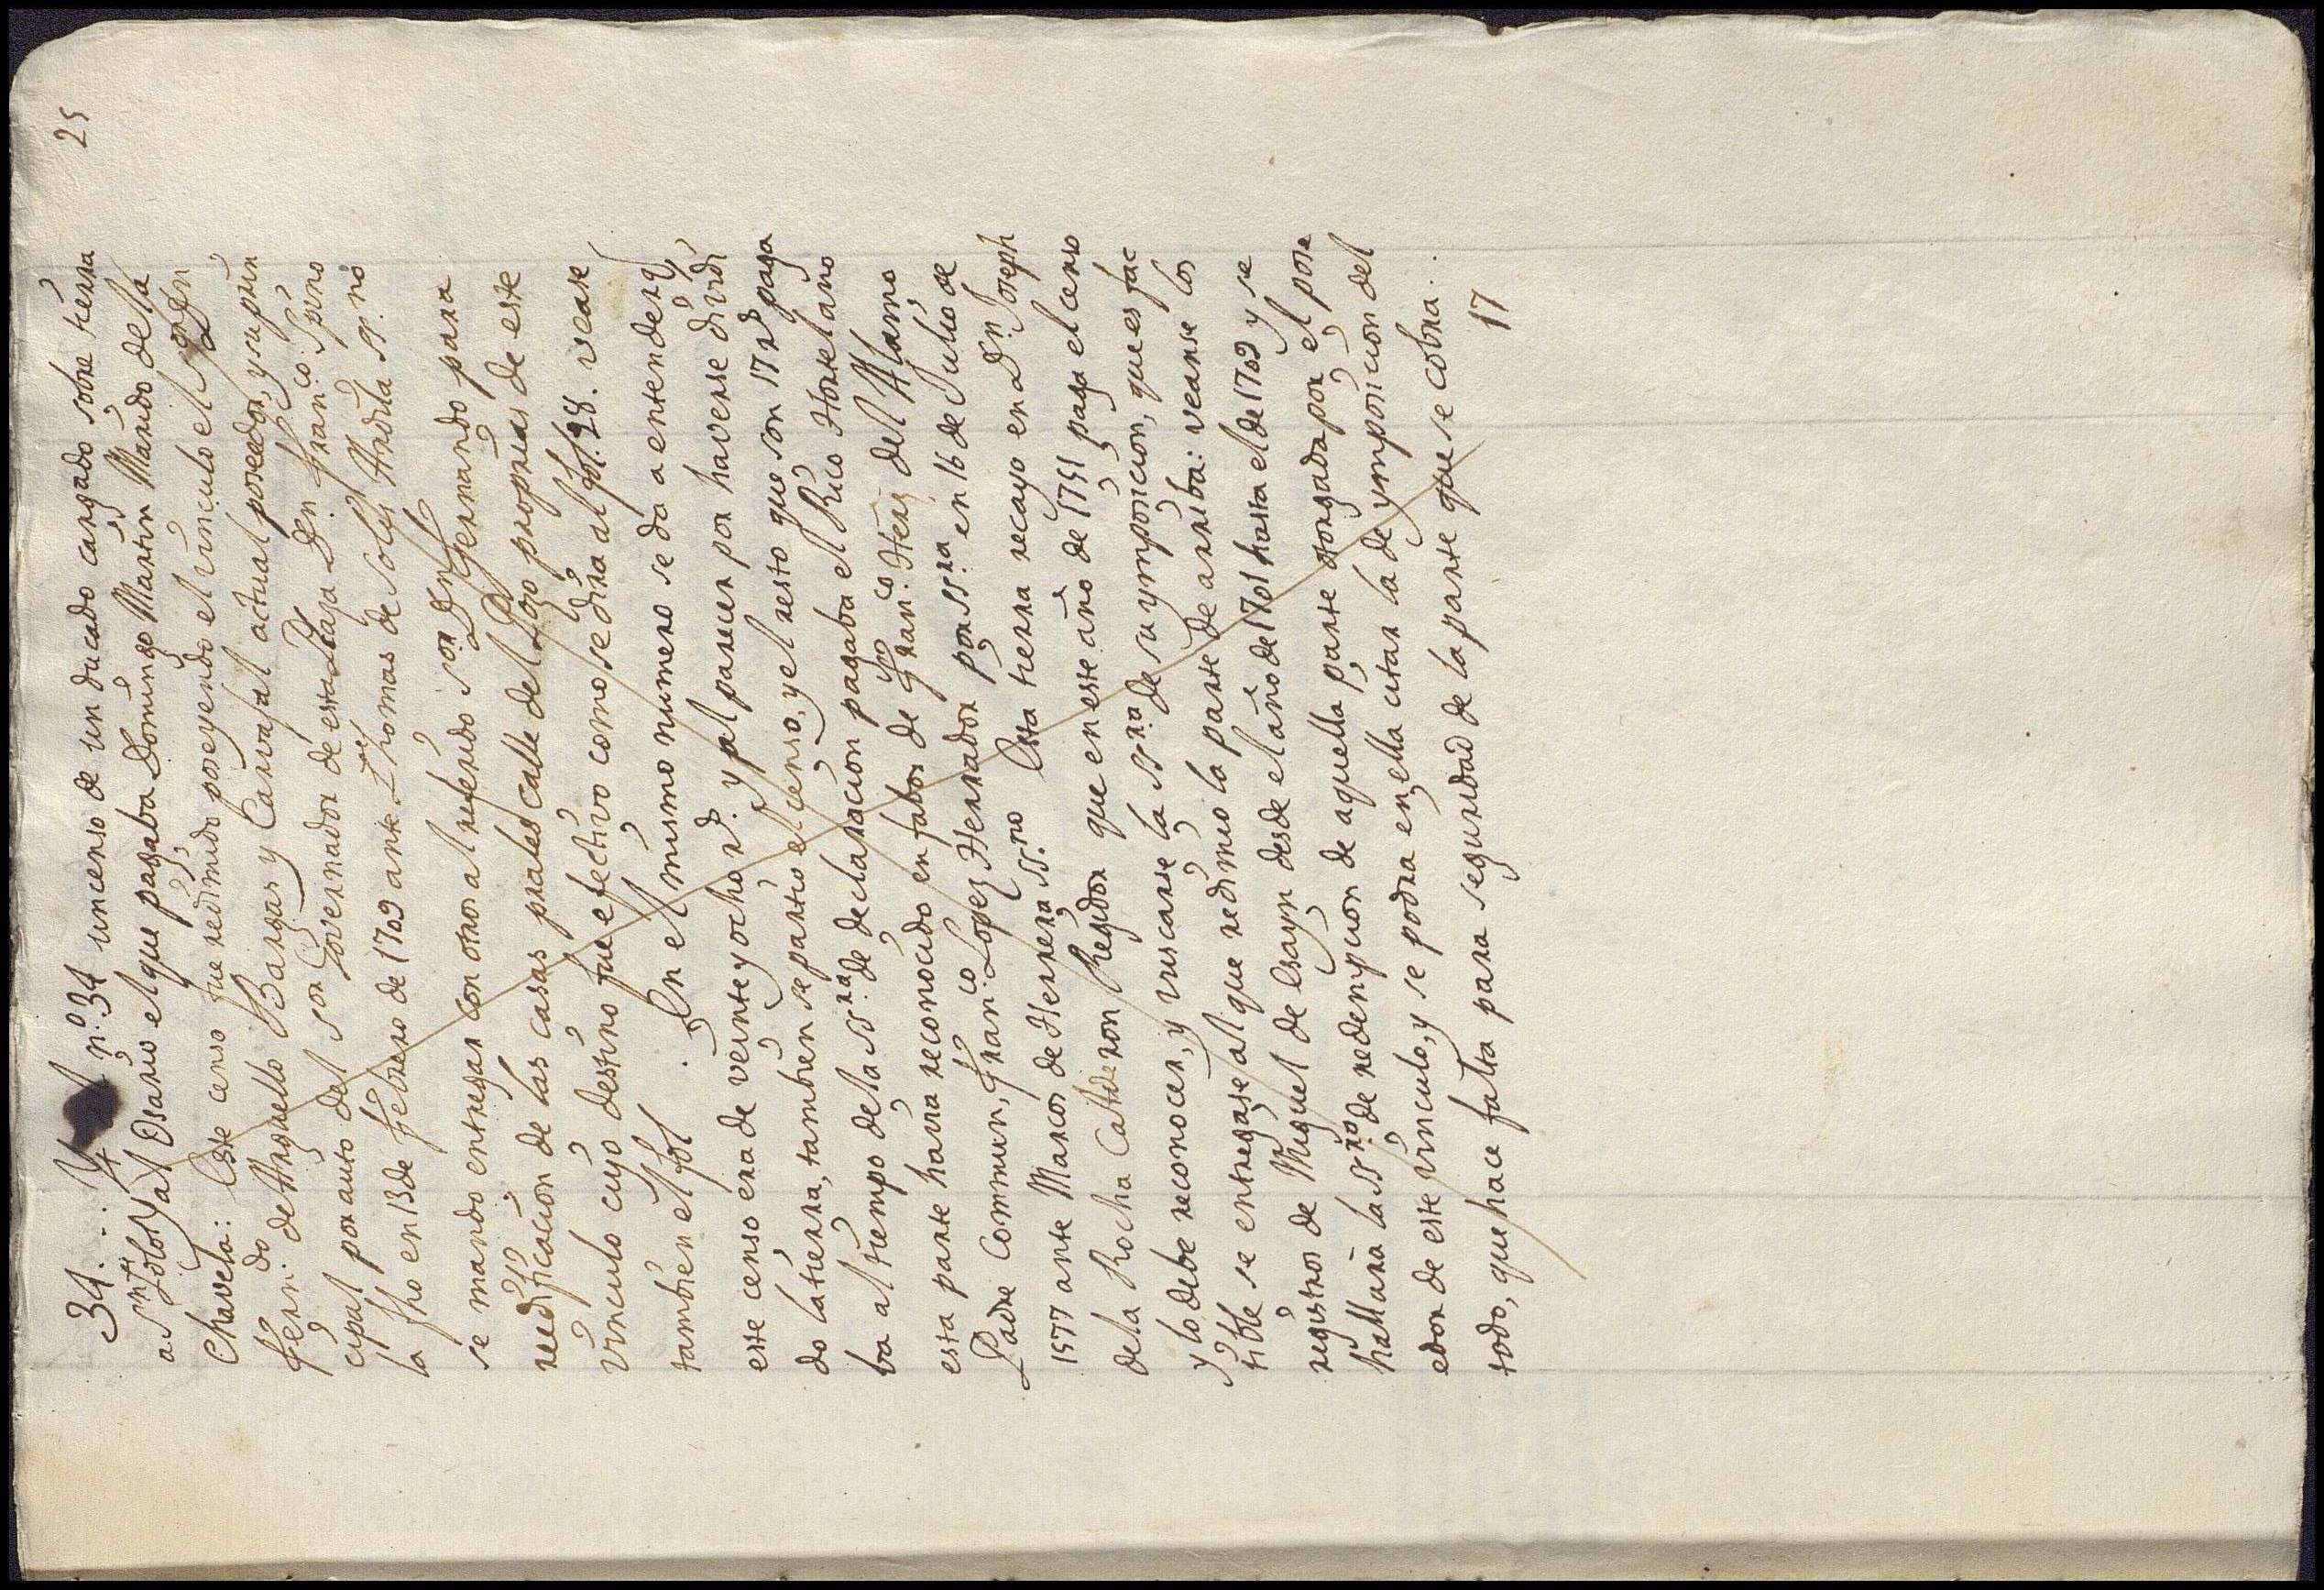 25
34. Yt n.º 34 un censo de un ducado cargado sobre tierra
a S.n Polo, y al Osario el que pagaba Domingo Martin Marido de la
Chaveta: Este censo fue redimido poseyendo el vinculo el S.or D.n
Fern.do de Arguello Bargas y Carvajal actual poseedor, y su prin
cipal por auto del s.or Governador de esta Plaza D.n Fran.co Pino
la fho en 13 de Febrero de 1709 ante Thomas de Solis Abila SS.no
se mando entregar con otros al referido s.or D.n Fernando para
reedificacion de las casas prales calle del Pozo proprias de este
vinculo cuyo destino fue efectivo como se dira al fol. 28. vease
tambien el fol . En el mismo numero se da a entender q,
este censo era de veinte y ocho r.s y al parecer por haverse dividi
do la tierra, tambien se partio el censo, y el resto que son 17 r.s paga
ba al tiempo de la SS.ra de declaracion pagaba el Rico Hortelano
esta parte havia reconocido en fabor de Fran.co Herz del Alamo
Padre Commun, Fran.co Lopez Herrador por SS.ra en 16 de Julio de
1577 ante Marcos de Herrera SS.no Esta tierra recayo en D.n Joseph
de la Rocha Calderon Regidor que en este año de 1751 paga el censo
y lo debe reconocer, y buscarse la SS.ra de su ymposicion, que es fac
tible se entregase al que redimio la parte de arriba: veanse los
registros de Miguel de Esayn desde el año de 1701 hasta el de 1709 y se
hallara la SS.ra de redempcion de aquella parte otorgada por el pose
edor de este vinculo, y se podra en ella citar la de ymposicion del
todo, que hace falta para seguridad de la parte que se cobra.
17